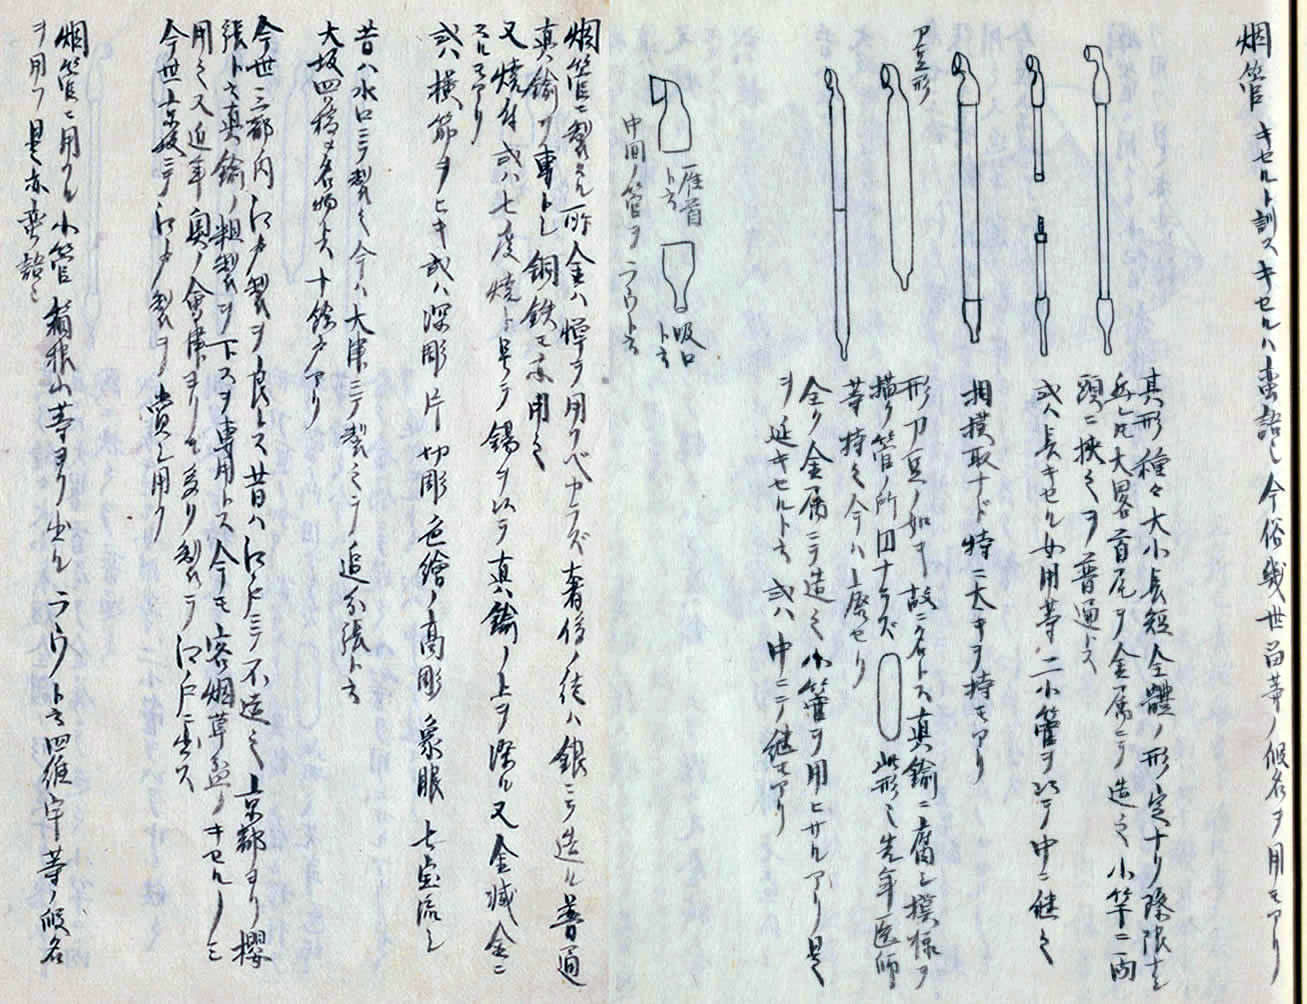 烟管 キセルト訓ス キセルハ蛮語也 今俗幾世留等ノ假名ヲ用モアリ
其形種々大小長短全體ノ形定ナリ際限
大畧首尾ヲ金属ニテ造之小竿ニ両
頭ニ挟之ヲ普通トス
或ハ長キセル女用等ハ二小管ヲ以テ中ニ継之
相撲取ナド特ニ太キヲ持モアリ
ナタ豆形
形刀豆ノ如キ故ニ名トス真鍮ニ腐シ模様ヲ
描ク管ノ所円ナラズ 此形也先年医師
等持之今ハ廃セリ
全ク金属ニテ造之小管ヲ用ヒサルアリ是
ヲ延キセルト云 或ハ中ニテ継モアリ
雁首
ト云
吸口
ト云
中間ノ管ヲラウト云
烟管ニ製スル所金ハ憚テ用フベカラズ奢侈ノ徒ハ銀ニテ造ル普通
真鍮ヲ専トシ銅鉄モ亦用之
又焼付或ハ七度焼ト号テ錫ヲ以テ真鍮ノ上ヲ深ル又金減金ニ
スルモアリ
或ハ横筋ヲヒキ或ハ深彫片切彫色繪ノ高彫象眼七宝流シ
昔ハ水口ニテ製之今ハ大津ニテ製之テ追分張ト云
大坂四橋名物ト云十餘戸アリ
今世三都内江戸製ヲ良トス昔日ハ江戸ニテ不造之京都ヨリ櫻
張トモ真鍮ノ粗製ヲ下スヲ専用トス今モ客烟草盆ノキセルノミ
用之又近年奥ノ會津ヨリモ多ク製シテ江戸ニ出ス
今世京坂ニテ江戸製ヲ賞シ用フ
烟管ニ用フル小管箱根山等ヨリ出ル ラウト云四維宇等ノ假名
ヲ用フ是亦蛮語也